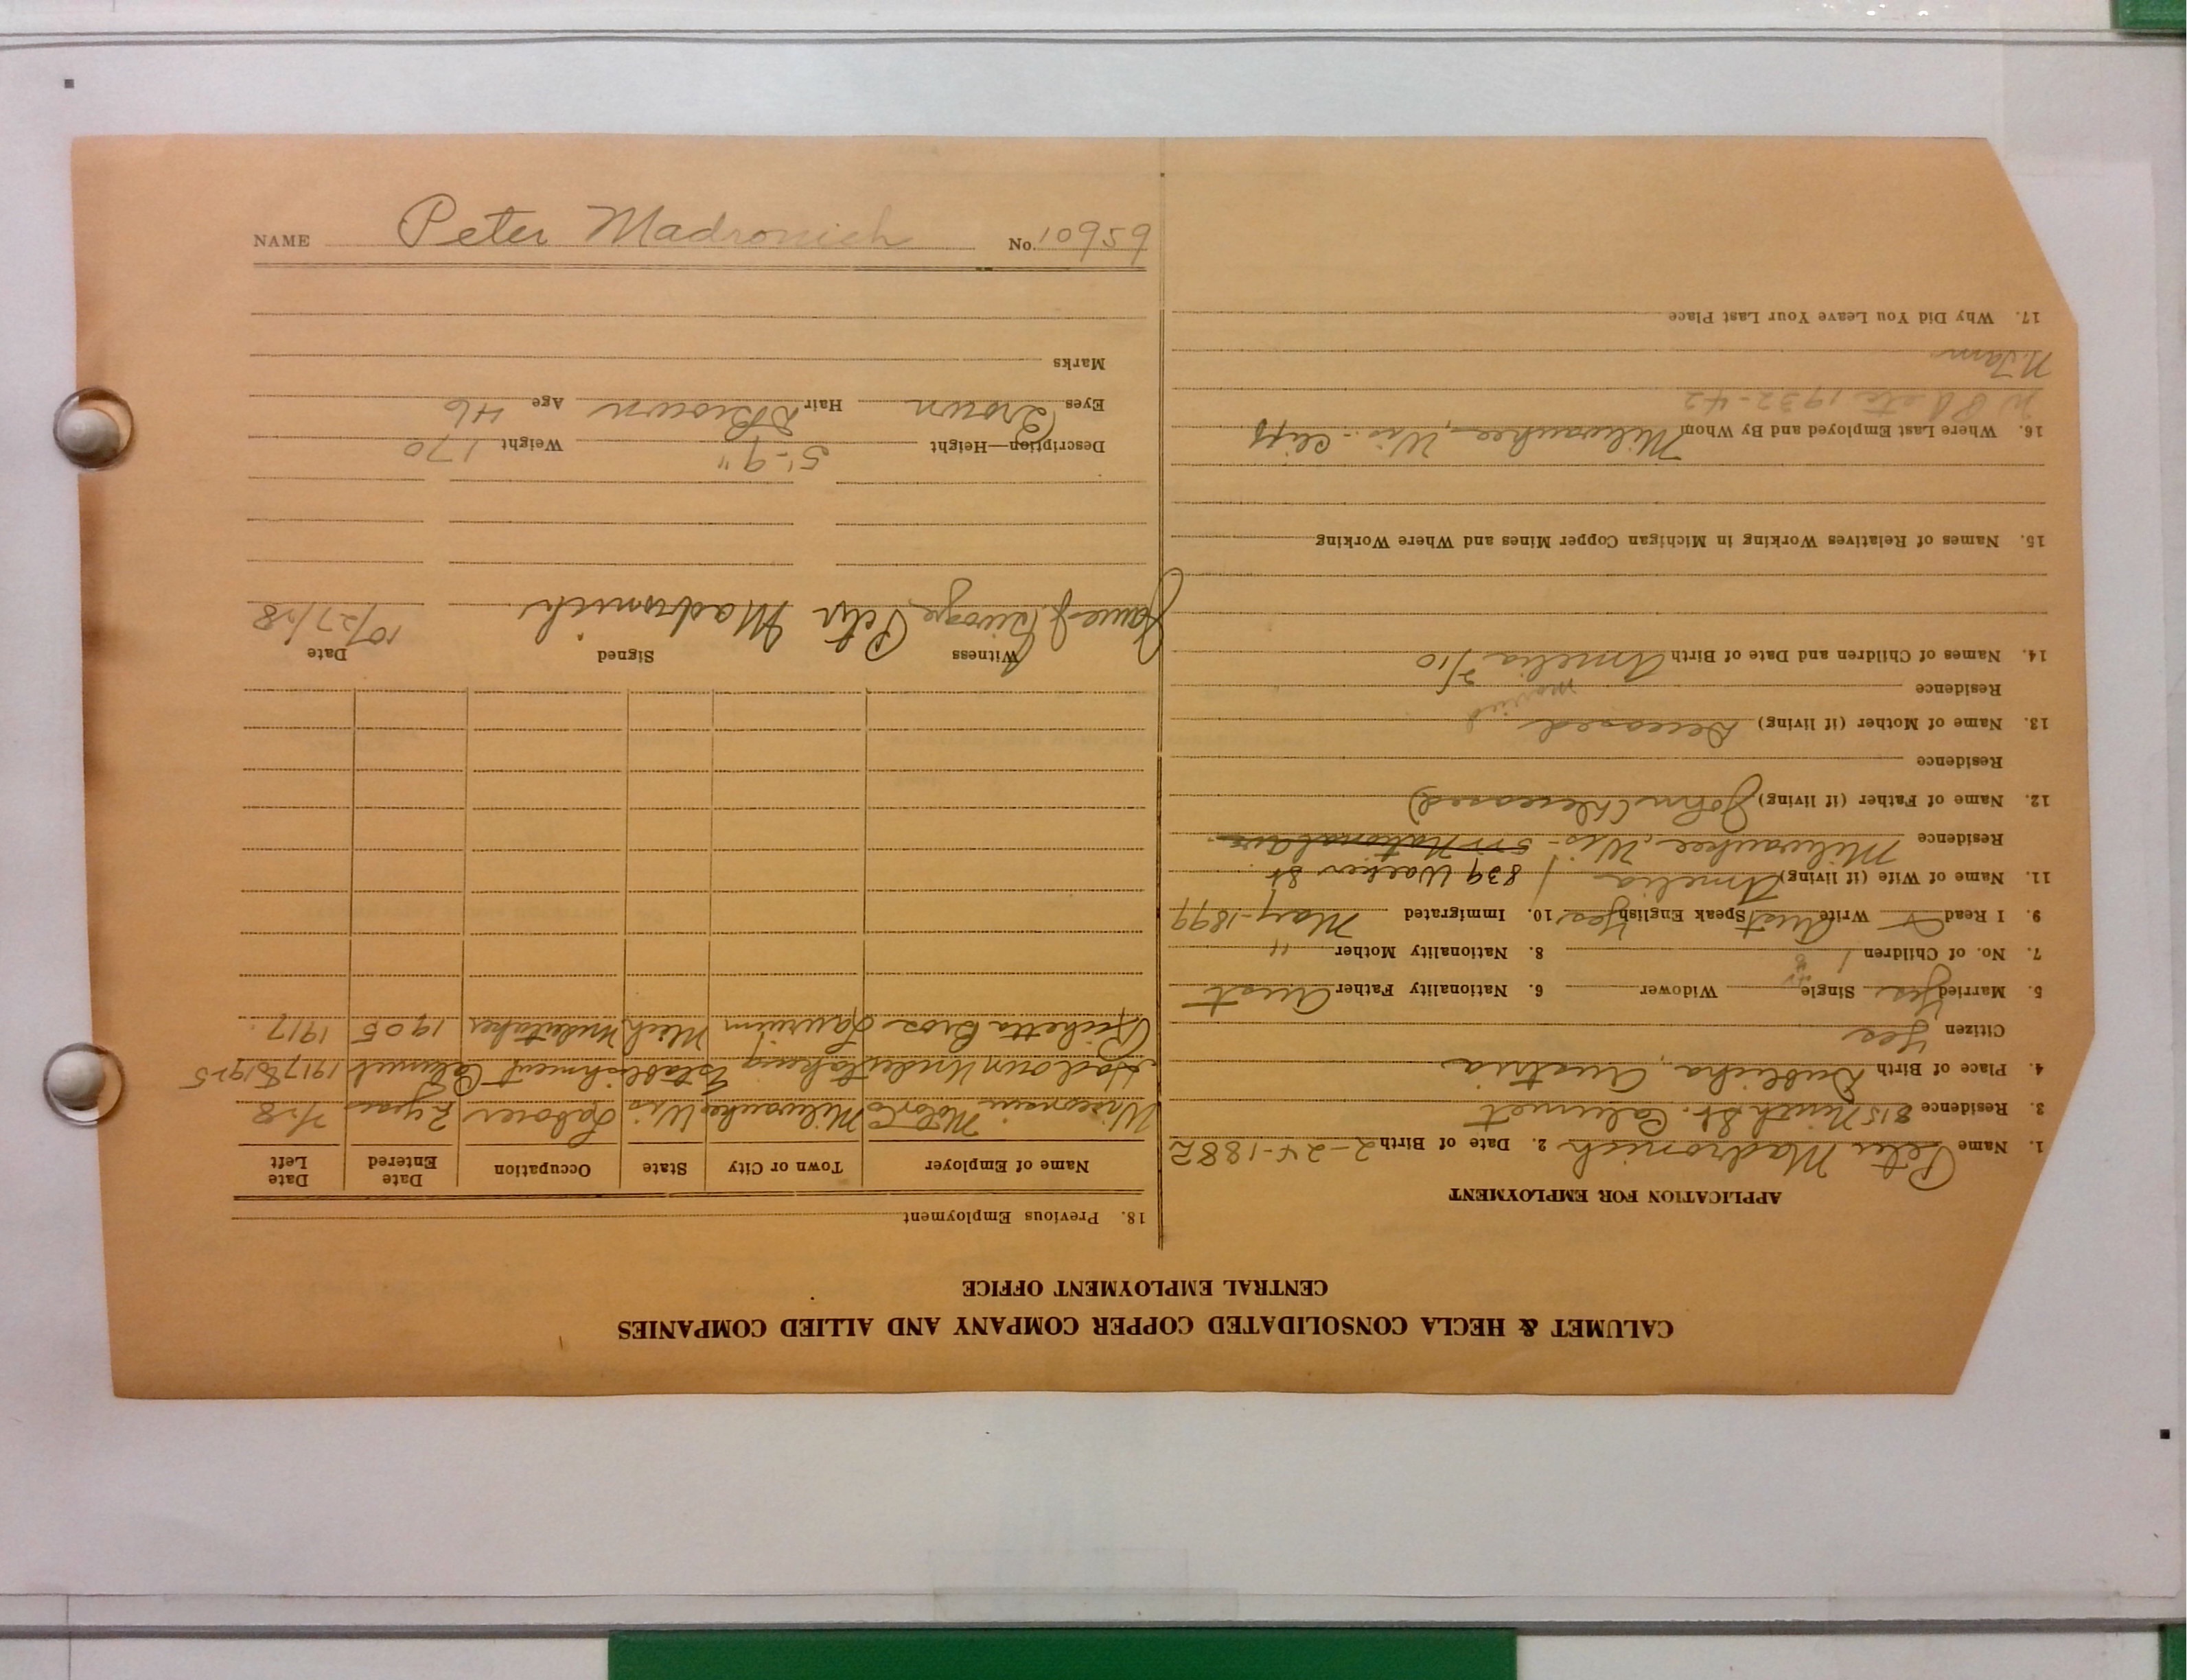 NAME Peter Madronich No. 10959
CALUMET & HECLA CONSOLIDATED COPPER COMPANY AND ALLIED COMPANIES
CENTRAL EMPLOYMENT OFFICE
APPLICATION FOR EMPLOYMENT
1. Name Peter Madronich 2. Date of Birth 2-24-1882
3. Residence 815 Ninth St. Calumet
4. Place of Birth Dublicha, Austria
Citizen Yes
5. Married Yes Single Widower 6. Nationality Father Aust
7. No. of Children 1 8. Nationality Mother "
9. I Read Write Aust Speak English Yes 10. Immigrated May-1899
11. Name of Wife (if living) Amelia / 839 Walker St
Residence Milwaukee, Wis - National Ave
12. Name of Father (if living) John (Deceased)
Residence
13. Name of Mother (if living) Deceased
Residence married
14. Names of Children and Date of Birth Amelia 2/10
15. Names of Relatives Working in Michigan Copper Mines and Where Working
16. Where Last Employed and By Whom Milwaukee, Wis.
1932-42
17. Why Did You Leave Your Last Place
18. Previous Employment
Name of Employer Town or City State Occupation Date Entered Date Left
Wisconsin Motor Co Milwaukee Wis Laborer 2 years 7/28
Had own Undertaking Establishment Calumet 1917 to 1925
Richetta Bros Laurium Mich Undertaker 1905 1917
Witness Signed Date
James Peter Madronich 10/27/28
Description—Height 5'-9" Weight 170
Eyes Brown Hair D Brown Age 46
Marks